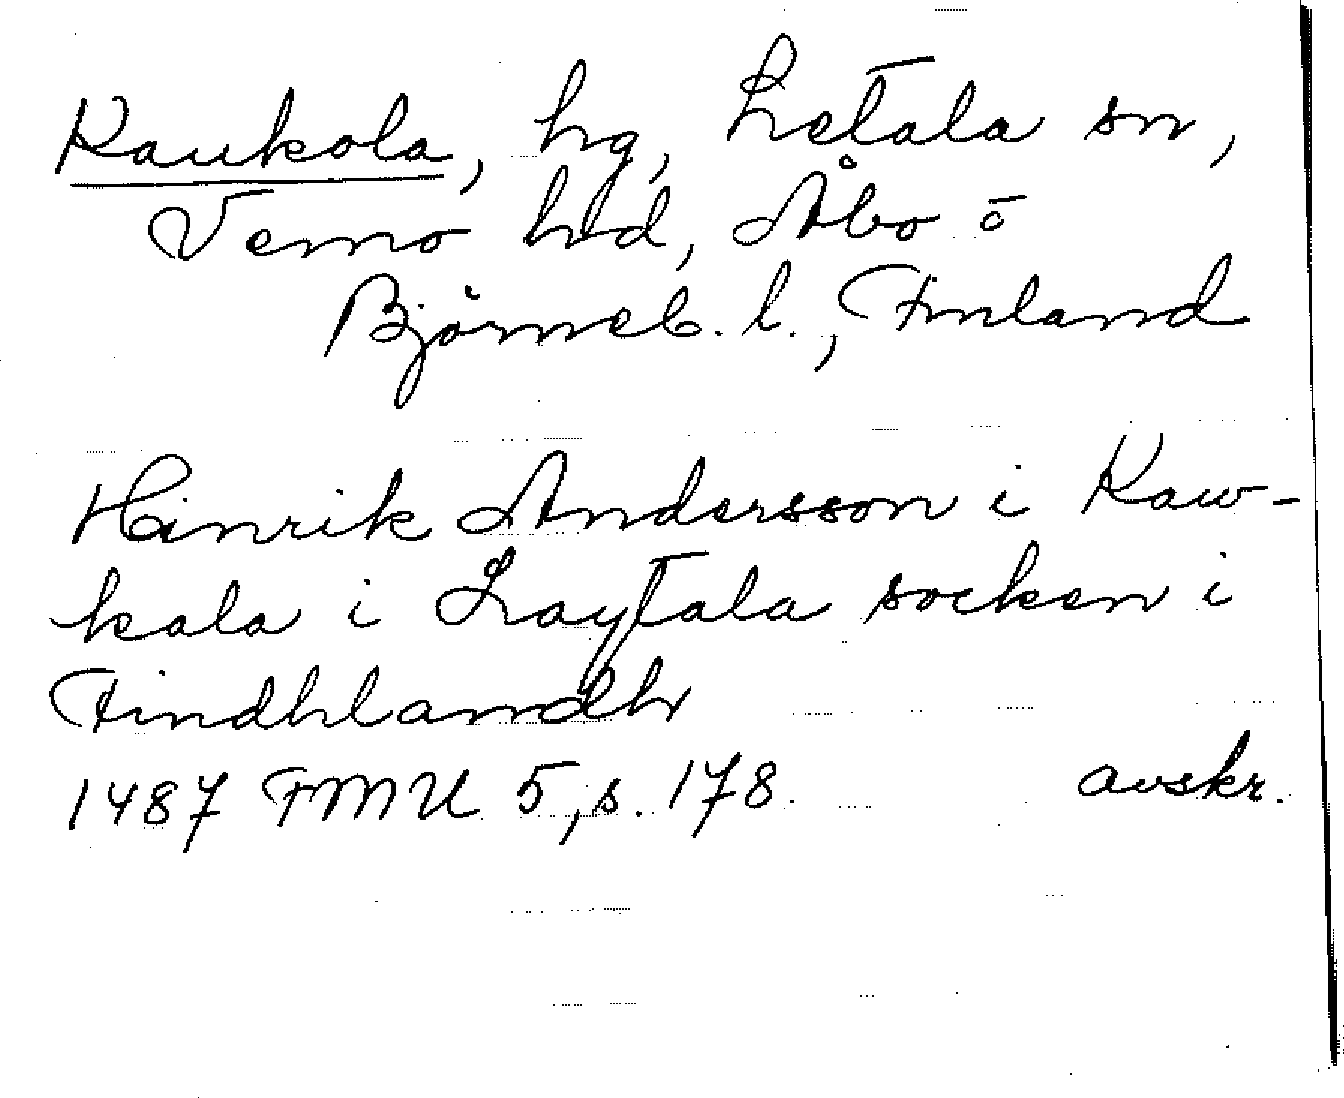 Kaukola, hg, Letala sn,
Vemo hd, Åbo o
Björneb. l., Finland
Hinrik Andersson i Kaw-
kala i Laytala socken i
Findhlandh
1487 FMU 5, s. 178. avskr.